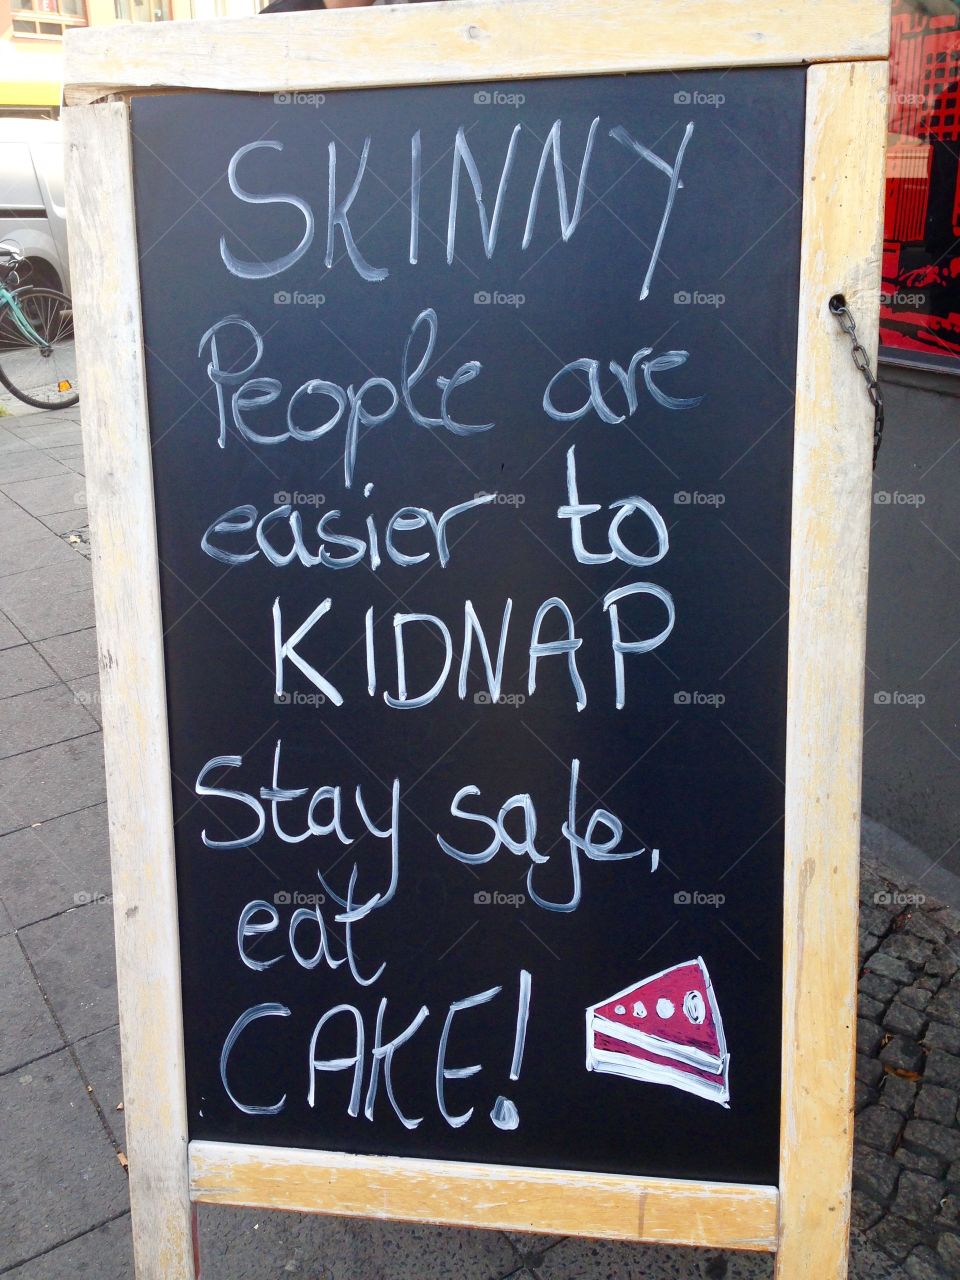 SKINNY
People are
easier to
KIDNAP
Stay safe,
eat
CAKE!